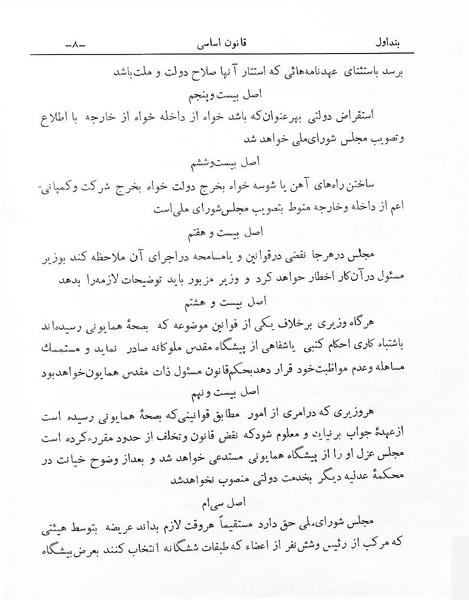 بنداول قانون اساسی ـ۸ـ
برسد باستثنای عهدنامه‌هائی که استتار آنها صلاح دولت و ملت‌باشد
اصل بیست‌و‌پنجم
استقراض دولتی بهرعنوان‌که باشد خواه از داخله خواه از خارجه با اطلاع
وتصویب مجلس شورای‌ملی خواهد شد
اصل بیست‌و‌ششم
ساختن راه‌های آهن یا شوسه خواه بخرج دولت خواه بخرج شرکت وکمپانی
اعم از داخله وخارجه منوط بتصویب مجلس‌شورای ملی‌است
اصل بیست و هفتم
مجلس درهرجا نقضی درقوانین و یامسامحه دراجرای آن ملاحظه کند بوزیر
مسئول درآن‌کار اخطار خواهد کرد و وزیر مزبور باید توضیحات لازمه‌را بدهد
اصل بیست و هشتم
هرگاه وزیری برخلاف یکی از قوانین موضوعه که بصحهٔ همایونی رسیده‌اند
باشتباه کاری احکام کتبی یاشفاهی از پیشگاه مقدس ملوکانه صادر نماید و مستمسك
مساهله وعدم مواظبت‌خود قرار دهد‌بحکم‌قانون مسئول ذات مقدس همایون‌خواهدبود
اصل بیست و نهم
هروزیری که درامری از امور مطابق قوانینی‌که بصحهٔ همایونی رسیده است
ازعهدهٔ جواب برنیاید و معلوم شودکه نقض قانون وتخلف از حدود مقرره‌کرده است
مجلس عزل او را از پیشگاه همایونی مستدعی خواهد شد و بعداز وضوح خیانت در
محکمهٔ عدلیه دیگر بخدمت دولتی منصوب نخواهدشد
اصل سی‌ام
مجلس شورای‌ملی حق دارد مستقیماً هروقت لازم بداند عریضه بتوسط هیئتی
که مرکب از رئیس وشش‌نفر از اعضاء که طبقات ششگانه انتخاب کنند بعرض‌پیشگاه